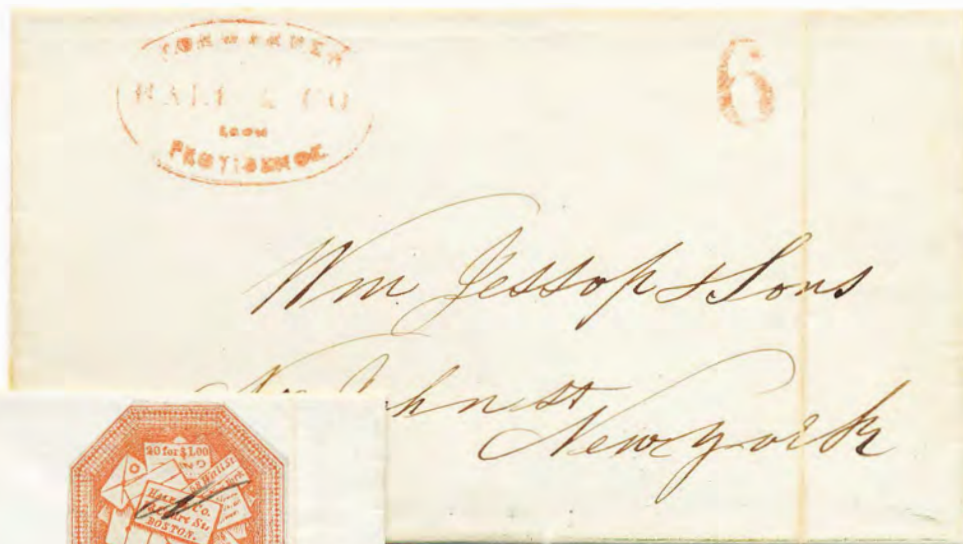 FORWARDED
HALE & CO
FROM
PROVIDENCE
6
Wm. Jessop & Sons
John st
New york
20 for $1.00
Hale & Co.
Court St.
BOSTON.